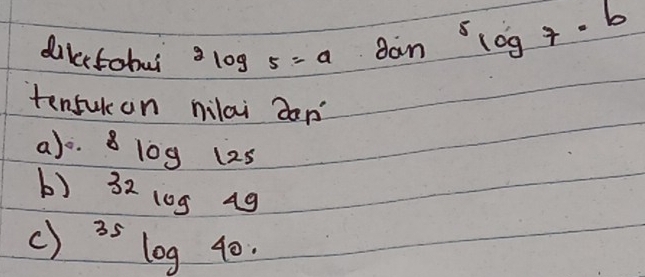 diketahui ²log 5 = a dan ⁵log 7 = b
tentukan nilai dari
a). ⁸log 125
b) ³²log 49
c) ³⁵log 40.